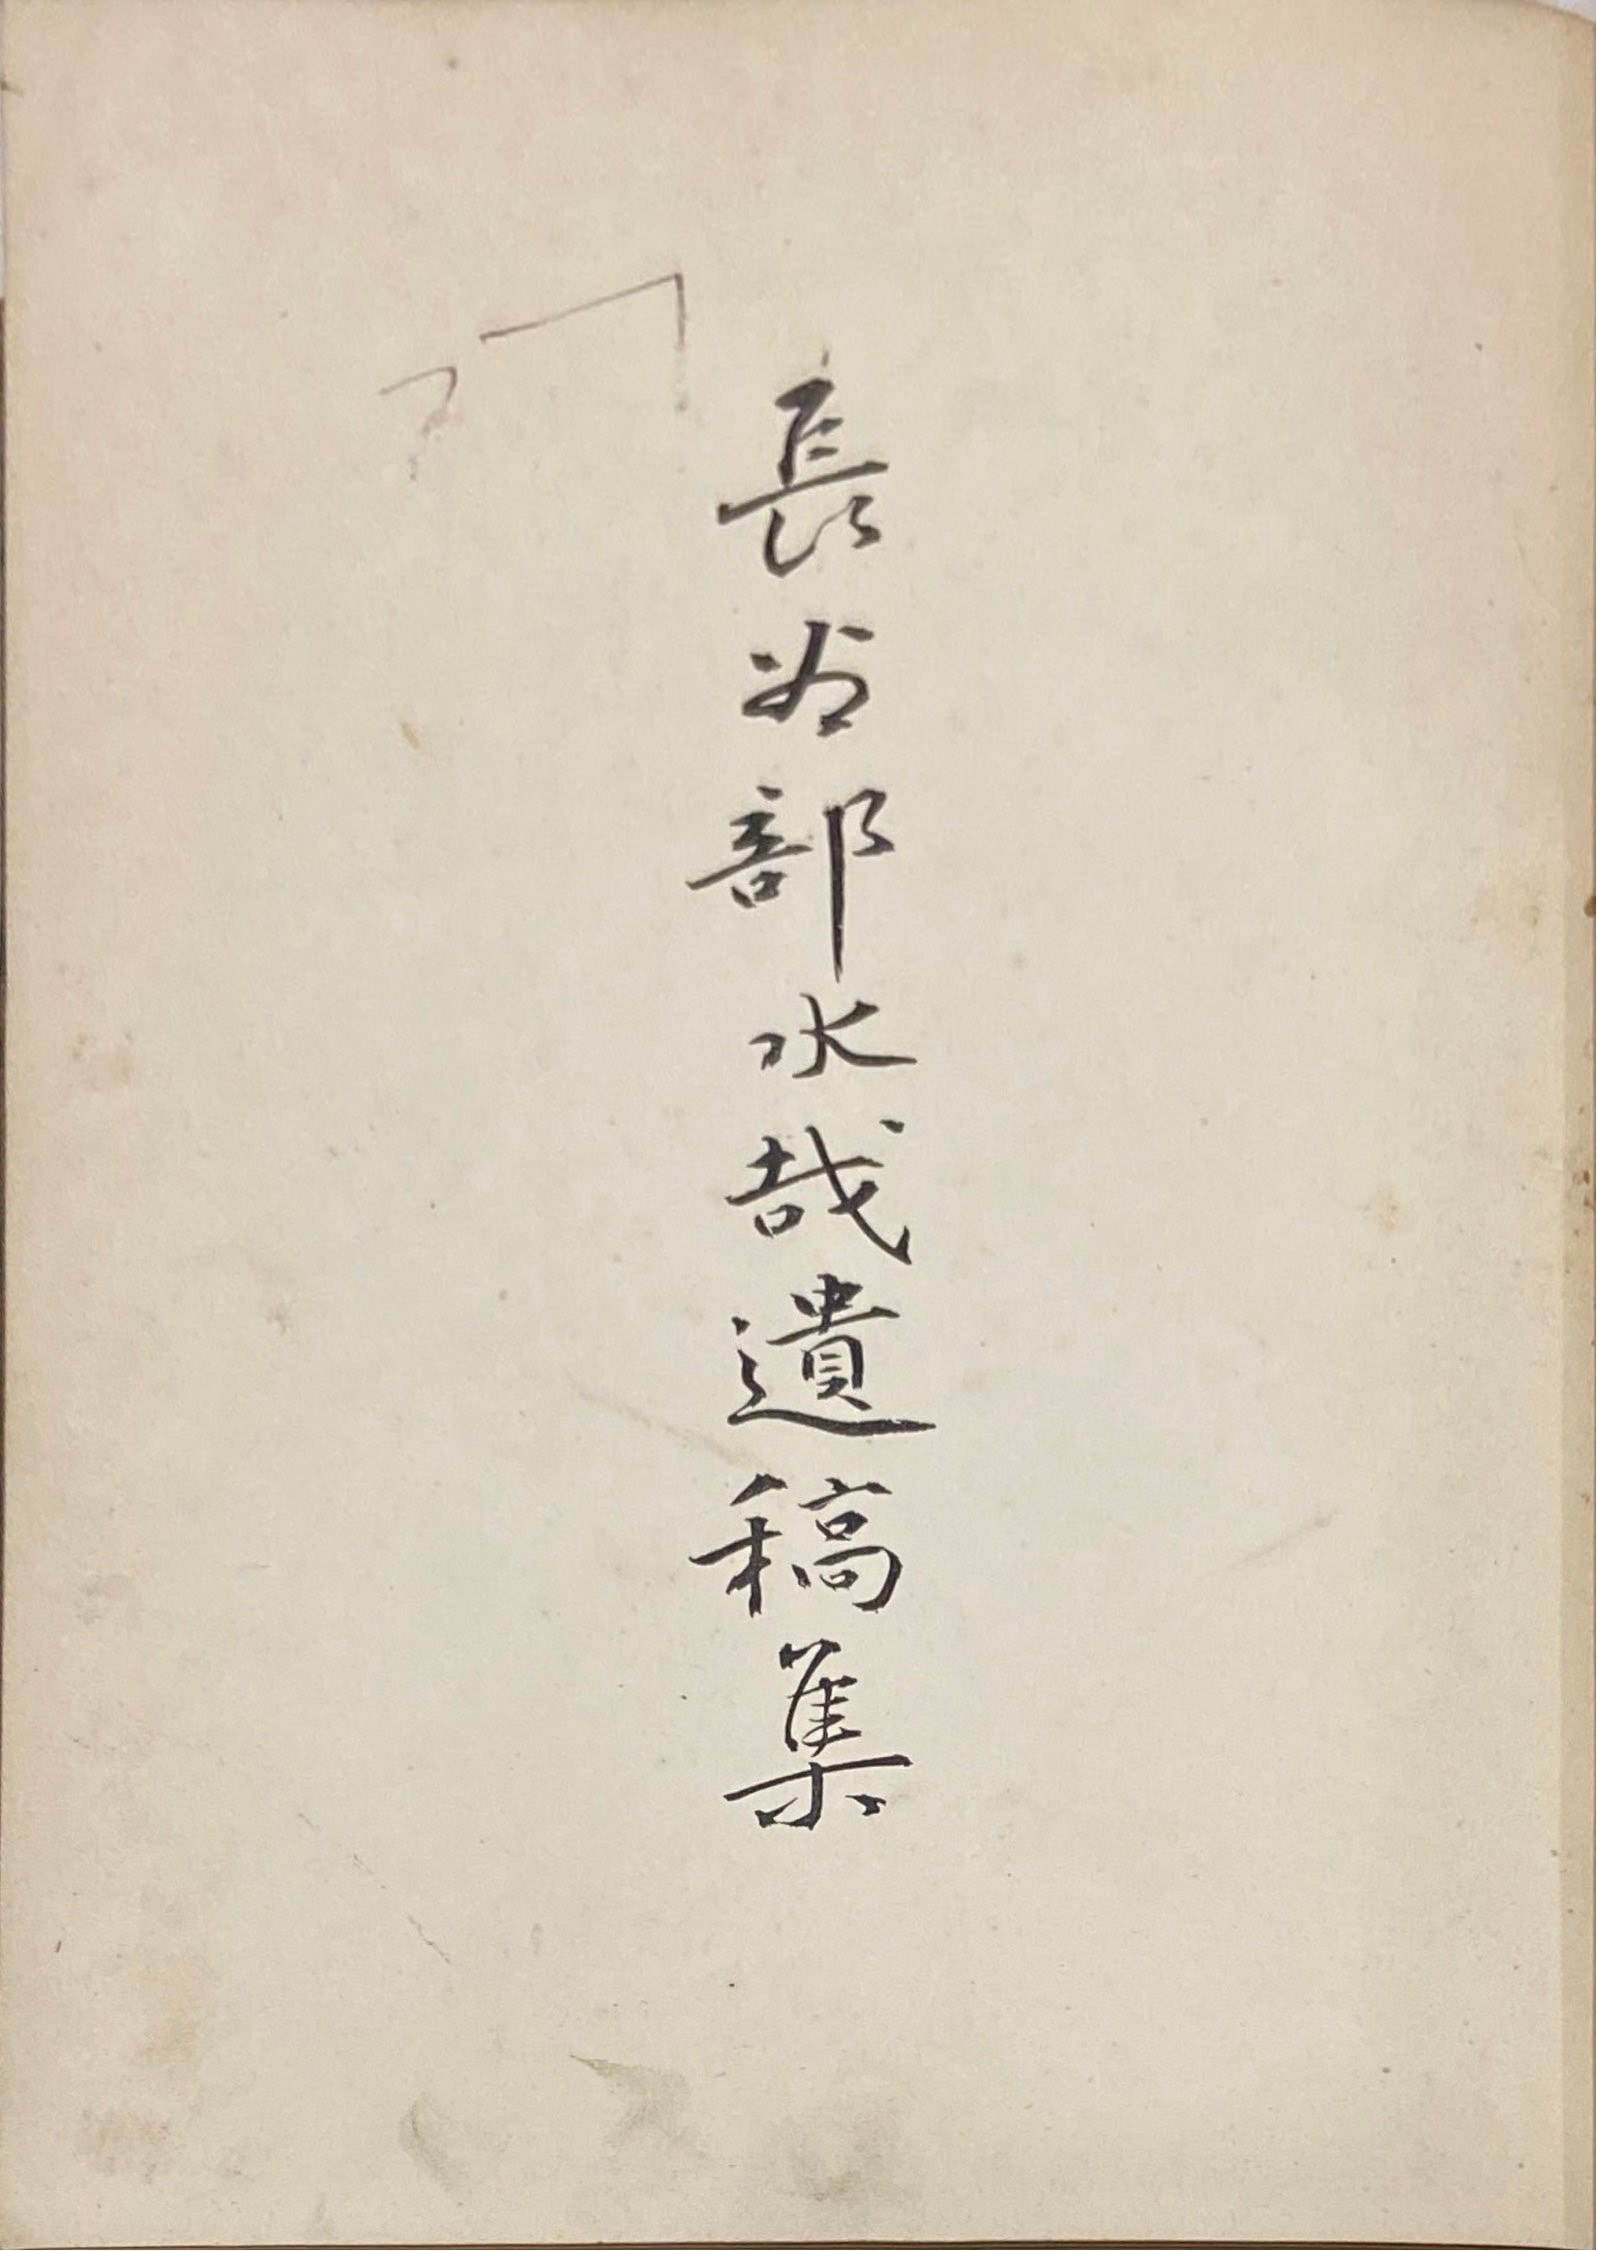 長谷部水哉遺稿集